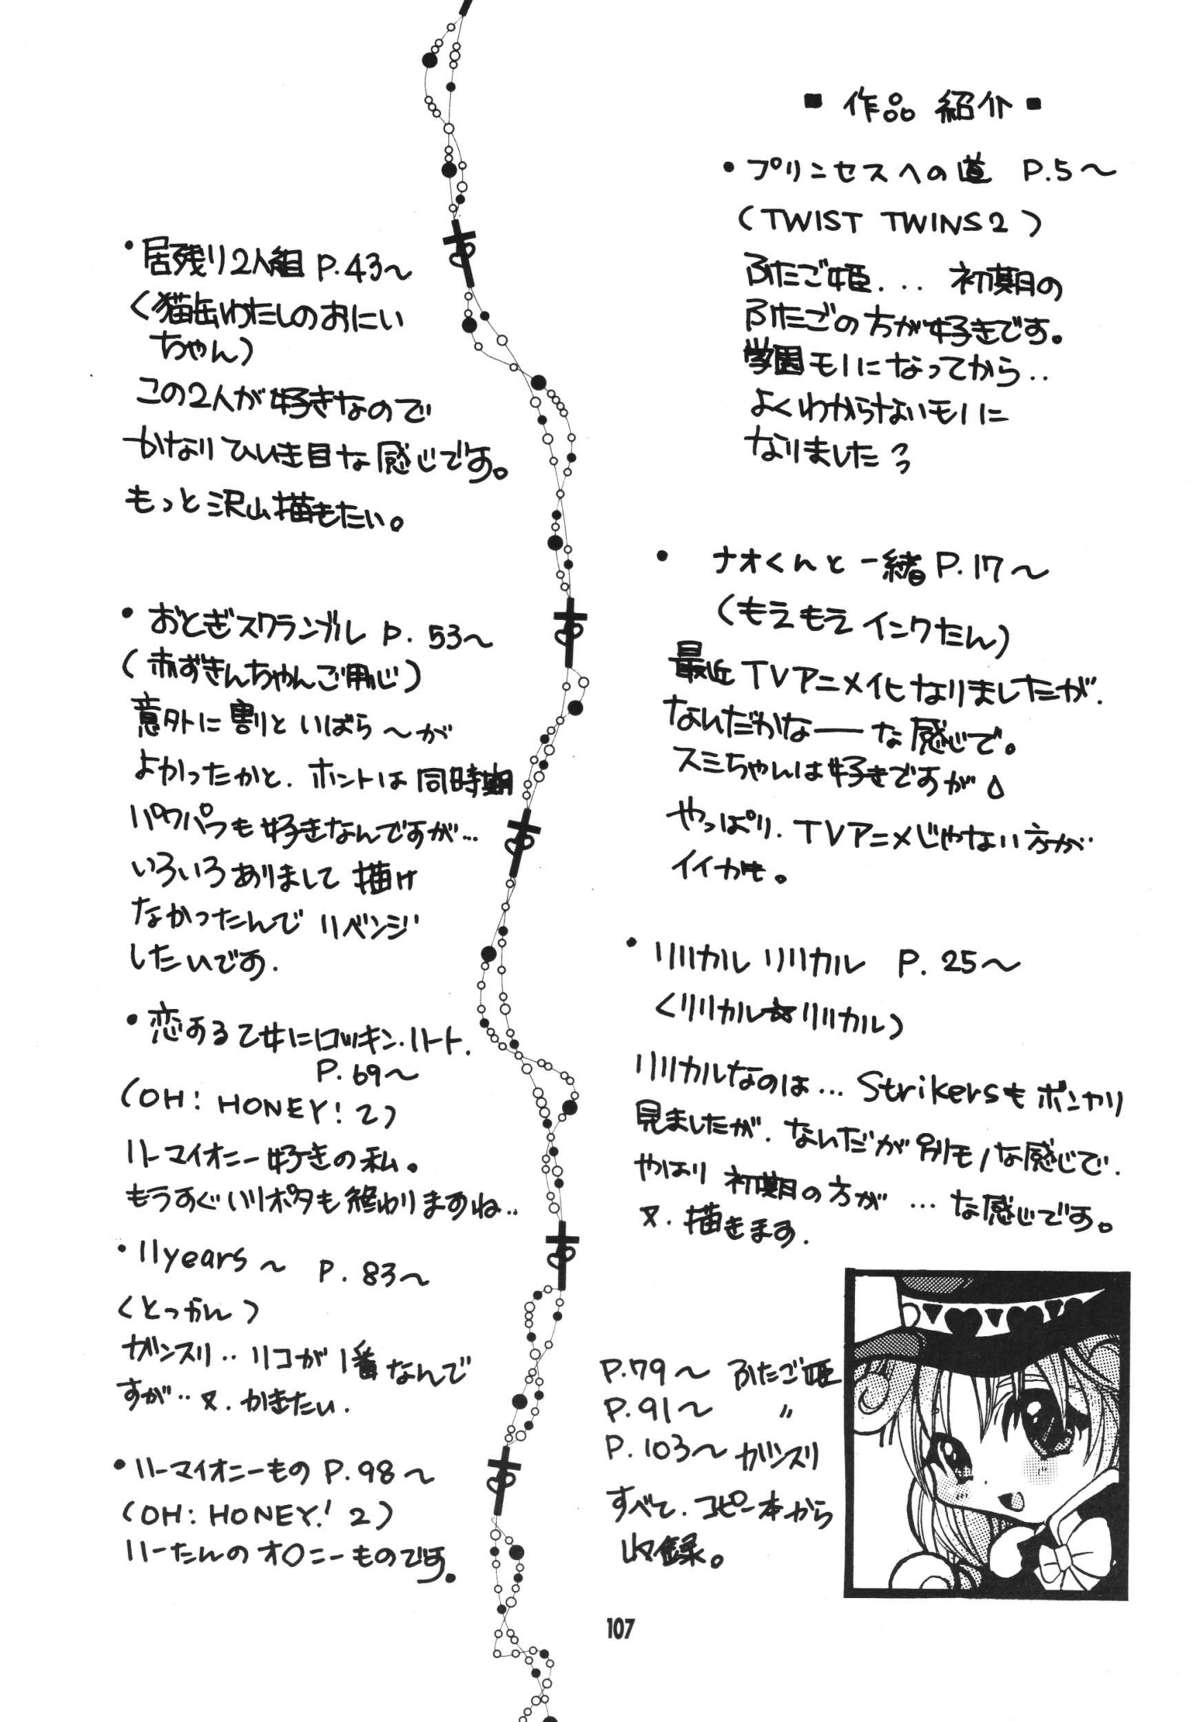 ■ 作品 紹介 ■
• プリンセスへの道 P.5〜
(TWIST TWINS2)
ふたご姫... 初期の
ふたごの方が好きです。
学園モノになってから..
よくわからないモノに
なりました
• ナオくんと一緒 P.17〜
(もえもえインクたん)
最近TVアニメ化なりましたが.
なんだかなーーな感じで。
スミちゃんは好きですが
やっぱり.TVアニメじゃない方が
イイかも。
• リリカル リリカル P.25〜
(リリカル☆リリカル)
リリカルなのは... Strikersもボンヤリ
見ましたが.ないだが別モノな感じで.
やはり 初期の方が ...な感じです。
又.描きます.
P.79〜 ふたご姫
P.91〜 〃
P.103〜 ガンスリ
すべて.コピー本から
収録。
• 居残り2人組 P.43〜
(猫缶わたしのおにい
ちゃん)
この2人が好きなので
かなりひいき目な感じです。
もっと沢山描きたい。
• おとぎスクランブル P.53〜
(赤ずきんちゃんご用心)
意外に割といばら〜が
よかったかと.ホントは同時期
パワパフも好きなんですが...
いろいろありまして描け
なかったんでリベンジ
したいです.
• 恋する乙女にロッキン・ハート.
P.69〜
(OH! HONEY! 2)
ハーマイオニー好きの私。
もうすぐハリポタも終わりますね..
• 11years〜 P.83〜
(とっかん)
ガンスリ..リコが1番なんで
すが..又.かきたい.
• ハーマイオニーもの P.98〜
(OH! HONEY! 2)
ハーたんのオ〇ニーものです。
107